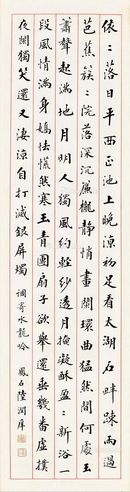 依〻落日平西正池上晚涼初足看太湖石畔疎雨過
芭蕉簇〻院落深沉簾櫳靜悄畫闌環曲猛然間何處玉
簫聲起滿地月明人獨風約輕紗透月掩凝酥盈〻新浴一
段風情滿身嬌怯恍然寒玉青團扇子欲舉還垂幾番虛撲
夜闌獨笑還又凄涼自打滅銀屏燭 調寄水龍吟 鳳石陸潤庠